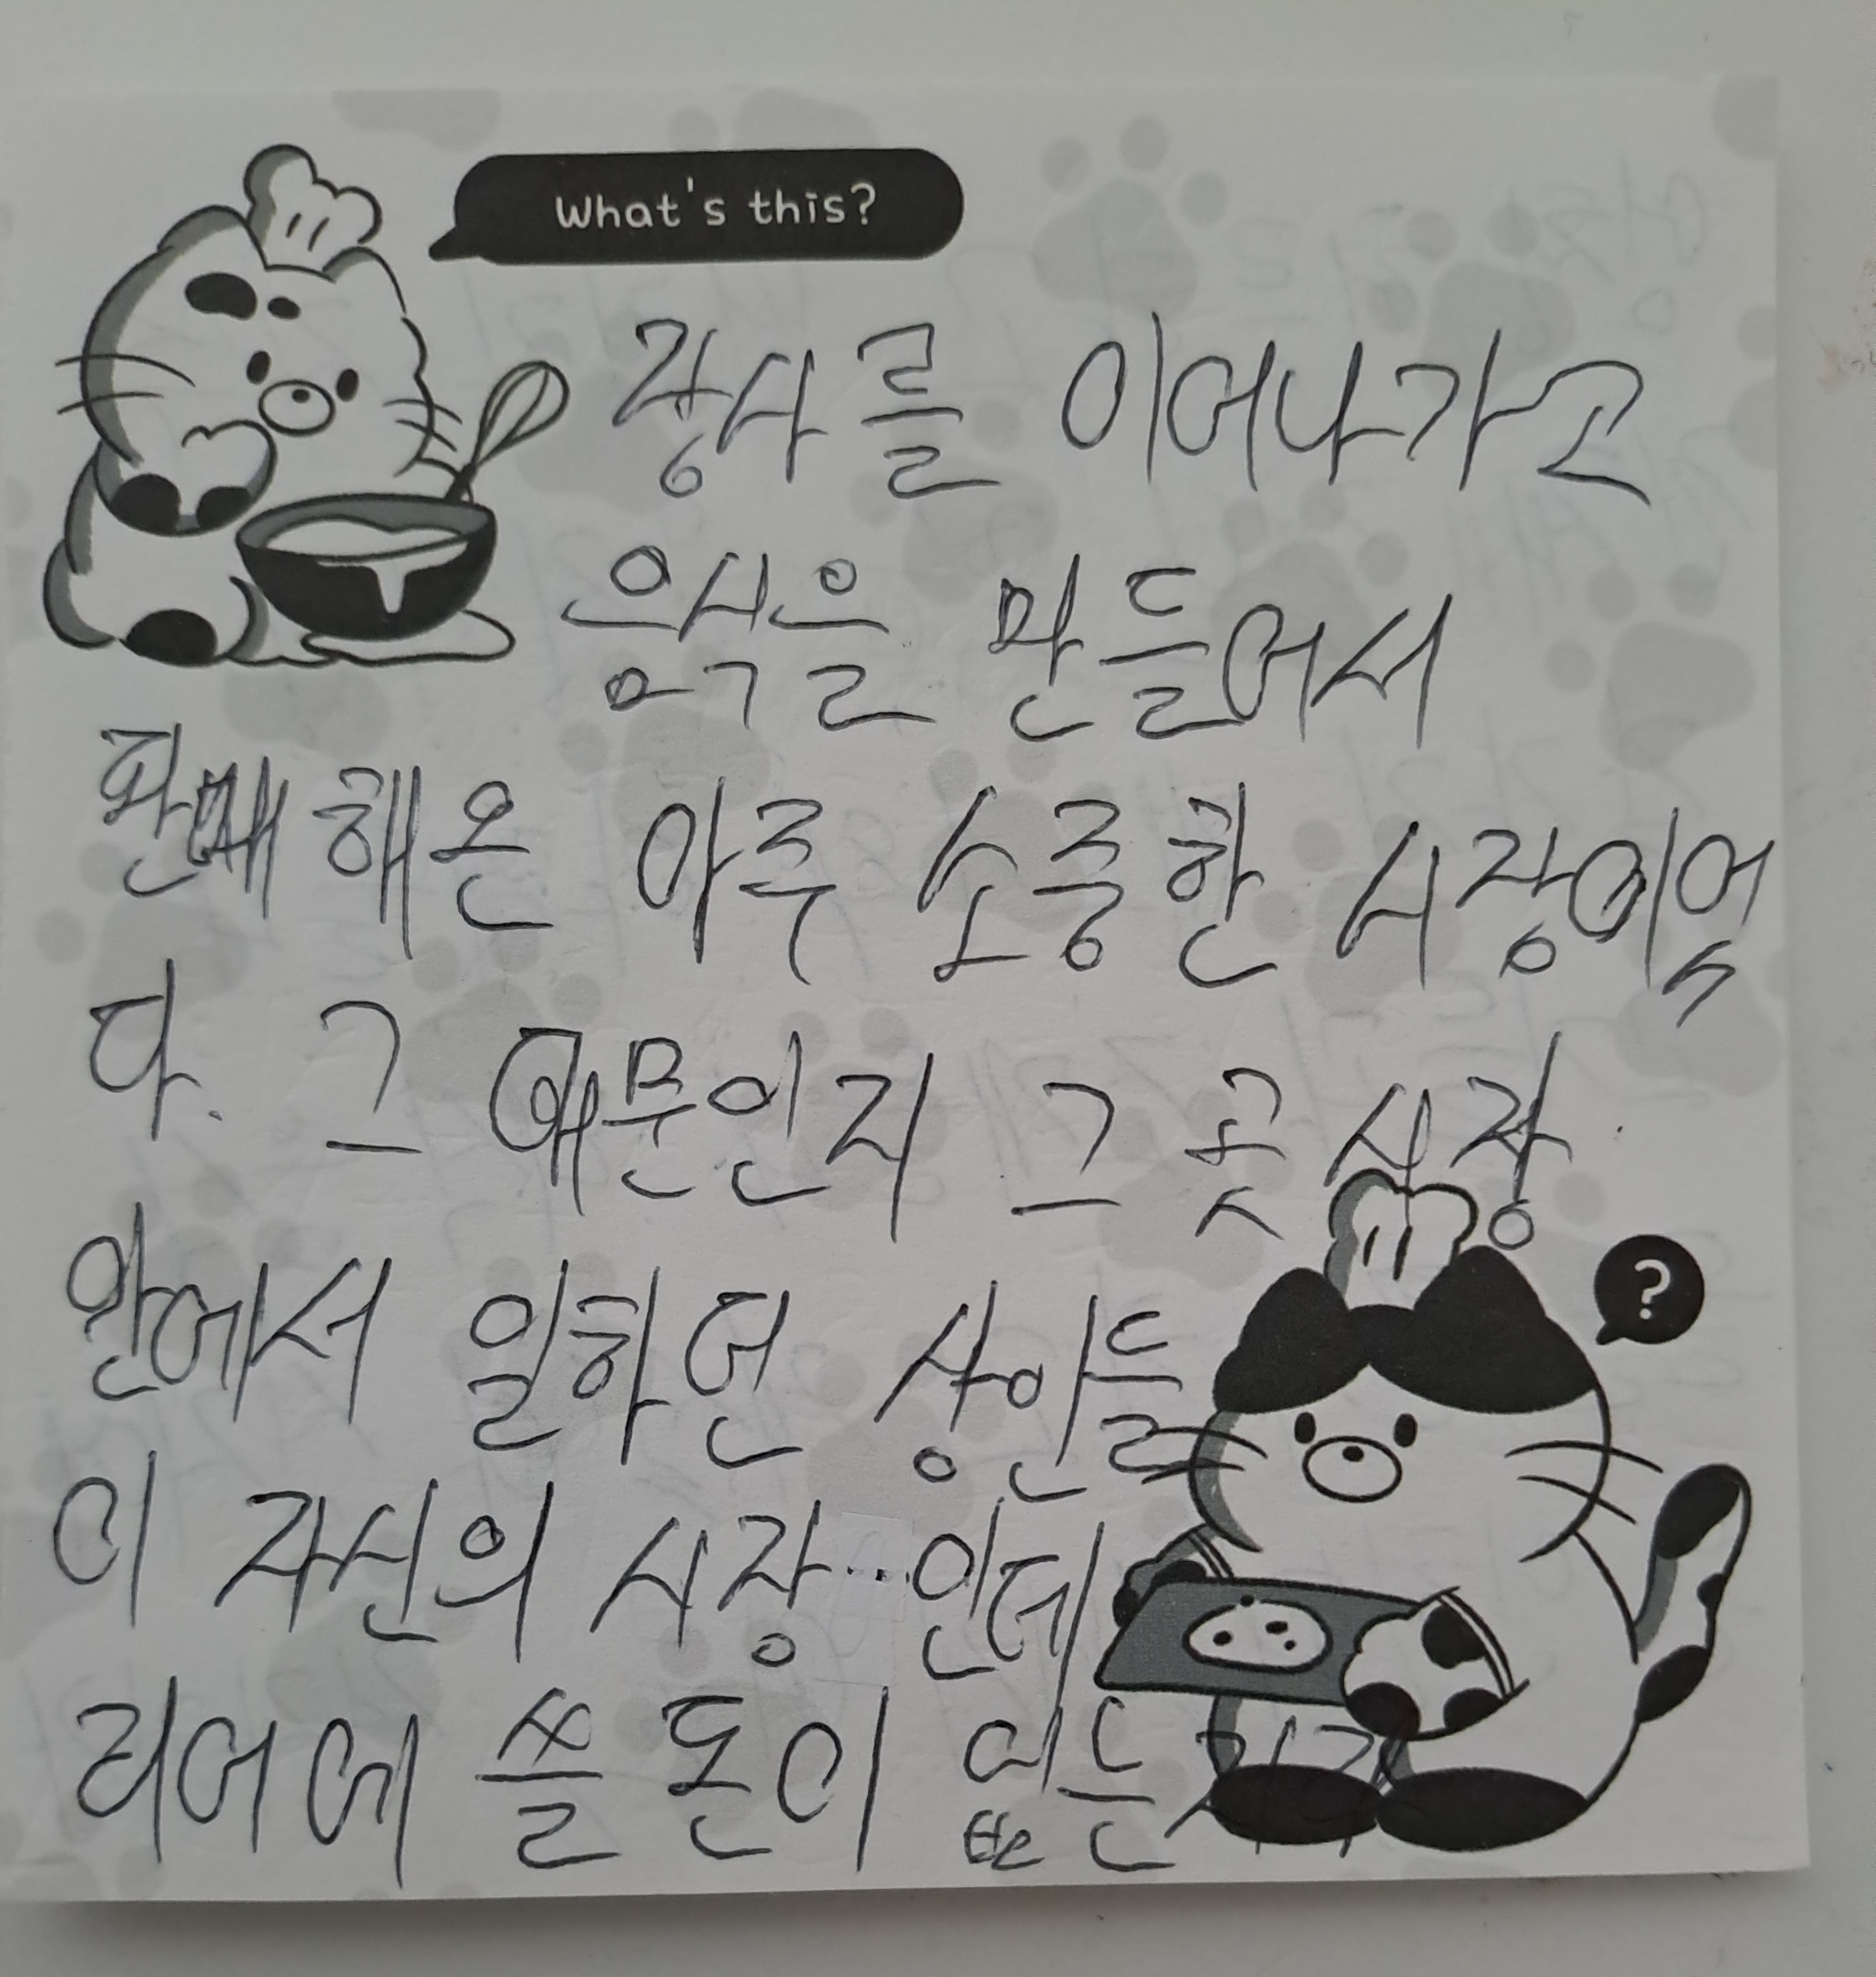 What's this?
장사를 이어나가고
음식을 만들어서
판매해온 아주 소중한 시장이었
다. 그 때문인지 그 곳 시장
안에서 일하던 상인들
?
이 자신의 시장…인테
리어에 쓸 돈이 없는